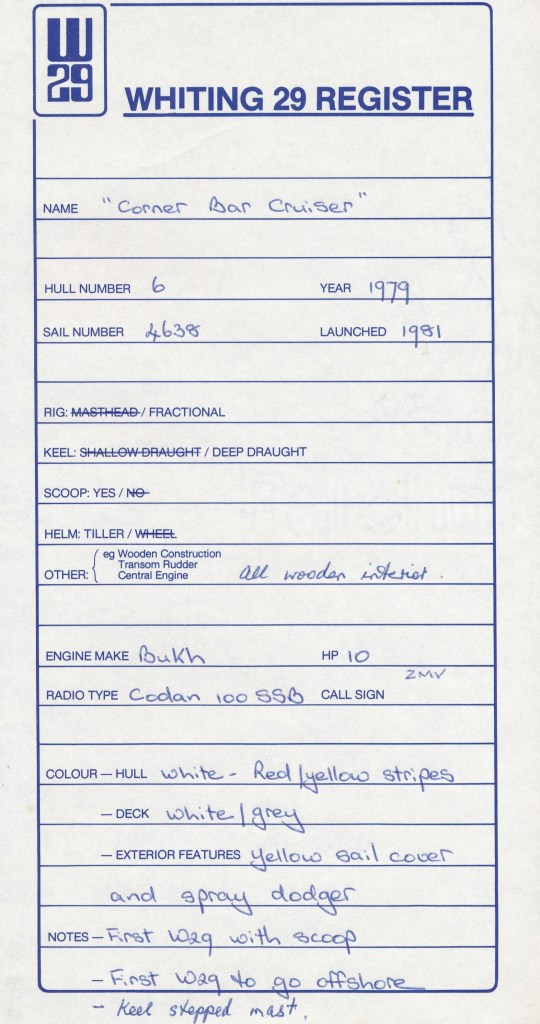 W
29
WHITING 29 REGISTER
NAME "Corner Bar Cruiser"
HULL NUMBER 6 YEAR 1979
SAIL NUMBER 4638 LAUNCHED 1981
RIG: MASTHEAD / FRACTIONAL
KEEL: SHALLOW DRAUGHT / DEEP DRAUGHT
SCOOP: YES / NO
HELM: TILLER / WHEEL
OTHER: { eg Wooden Construction
Transom Rudder
Central Engine all wooden interior.
ENGINE MAKE Bukh HP 10
RADIO TYPE Codan 100 SSB CALL SIGN ZMV
COLOUR — HULL white - Red/yellow stripes
— DECK white/grey
— EXTERIOR FEATURES yellow sail cover
and spray dodger
NOTES — First W29 with scoop
- First W29 to go offshore
- Keel stepped mast.